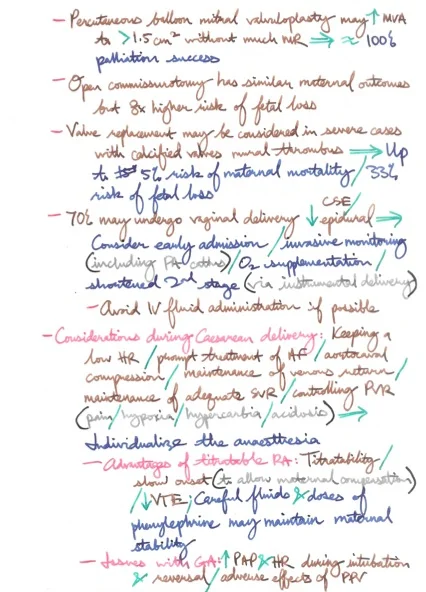 - Percutaneous balloon mitral valvuloplasty may ↑ MVA
to >1.5 cm² without much MR ⇒ ≈ 100%
palliation success
- Open commissurotomy has similar maternal outcomes
but 8x higher risk of fetal loss
- Valve replacement may be considered in severe cases
with calcified valves mural thrombus ⇒ Up
to 5% risk of maternal mortality / 33%
risk of fetal loss
- 70% may undergo vaginal delivery ↓ CSE/
epidural ⇒
Consider early admission / invasive monitoring
(including PA caths) / O2 supplementation /
shortened 2nd stage (via instrumental delivery)
- Avoid IV fluid administration if possible
- Considerations during Caesarean delivery: Keeping a
low HR / prompt treatment of AF / aortocaval
compression / maintenance of venous return /
maintenance of adequate SVR / controlling PVR
(pain / hypoxia / hypercarbia / acidosis) →
Individualize the anaesthesia
- Advantages of titratable RA: Titratability /
slow onset (to allow maternal compensation)
/ ↓ VTE; Careful fluids & doses of
phenylephrine may maintain maternal
stability
- Issues with GA: ↑ PAP & HR during intubation
& reversal / adverse effects of PPV